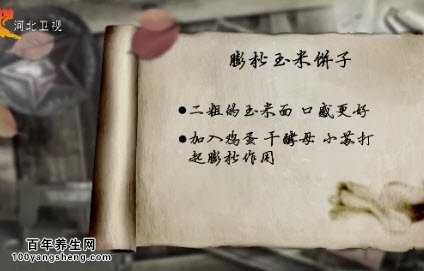 河北卫视
膨松玉米饼子
●二粗的玉米面 口感更好
●加入鸡蛋 干酵母 小苏打
起膨松作用
百年养生网
100yangsheng.com